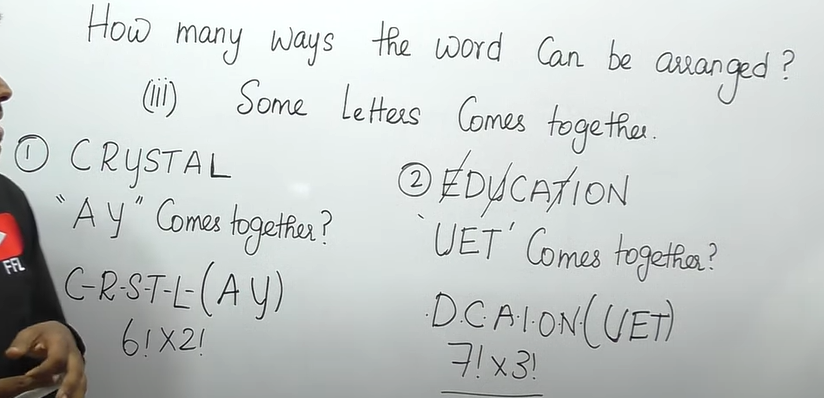 How many ways the word Can be arranged?
(iii) Some Letters Comes together.
① CRYSTAL
"AY" Comes together?
C-R-S-T-L-(AY)
6!×2!
② EDUCATION
'UET' Comes together?
.D.C.A.I.O.N(UET)
7!×3!
FFL